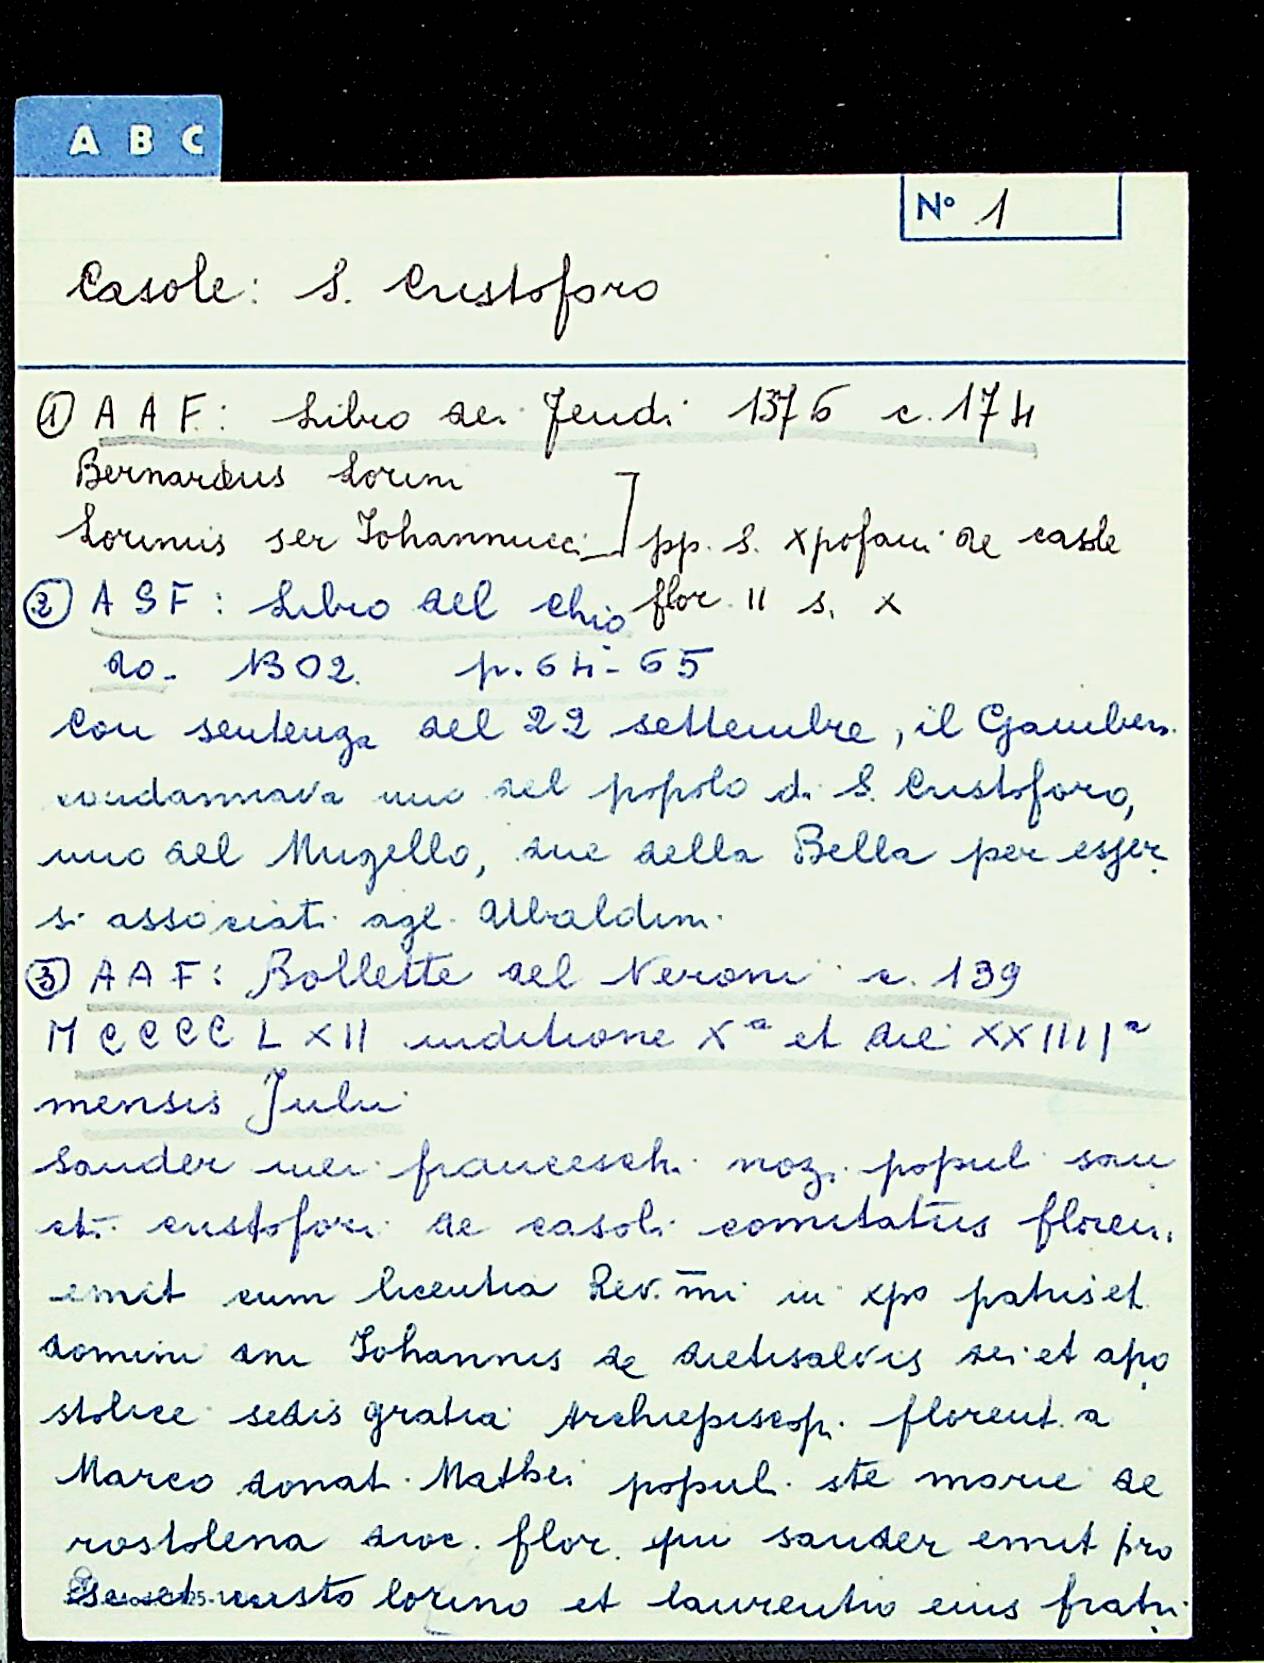 A B C
N° 1
Casole: S. Cristoforo
① A A F.: Libro dei Feudi 1376 c. 174
Bernardus Lorini
Lorinus ser Iohannucci ] pp. S. xpofani de casole
② A S F: Libro del Chio flor. II s. x
do. 1302. p. 64-65
Con sentenza del 22 settembre, il Gambra.
condannava uno del popolo di S. Cristoforo,
uno del Mugello, due della Bella per esser
si associati agli Ubaldini.
③ A A F: Bollette del Neroni c. 139
M C C C C L X I I inditione Xª et die XXIIIIª
mensis Julii
Sander mei franceschi noz. populi san
cti cristofori de casoli comitatus floren.
emit cum licentia Rev. m̄i in xpo patris et
domini dni Iohannis de dietisalvis dei et apo
stolice sedis gratia Archiepiscopi florent. a
Marco donati Mathei populi ste marie de
rostolena dioc. flor. qui sander emit pro
se et cristo lorino et laurentio eius fratri